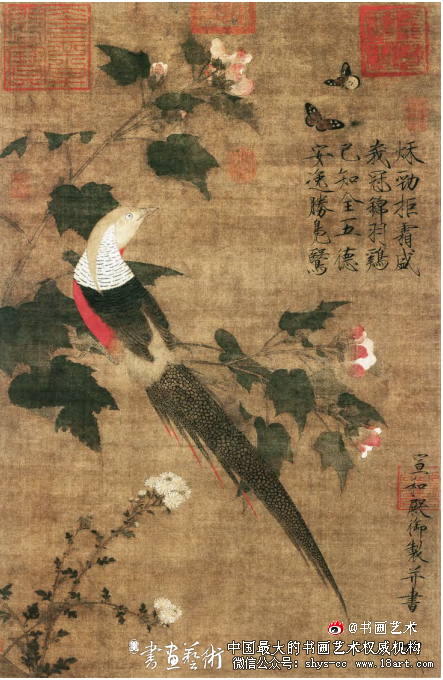 秌勁拒霜盛
峩冠錦羽鷄
已知全五德
安逸勝鳬鷖
宣和殿御製并書
@书画艺术
書画藝術
中国最大的书画艺术权威机构
微信公众号：shys-cc www.18art.com